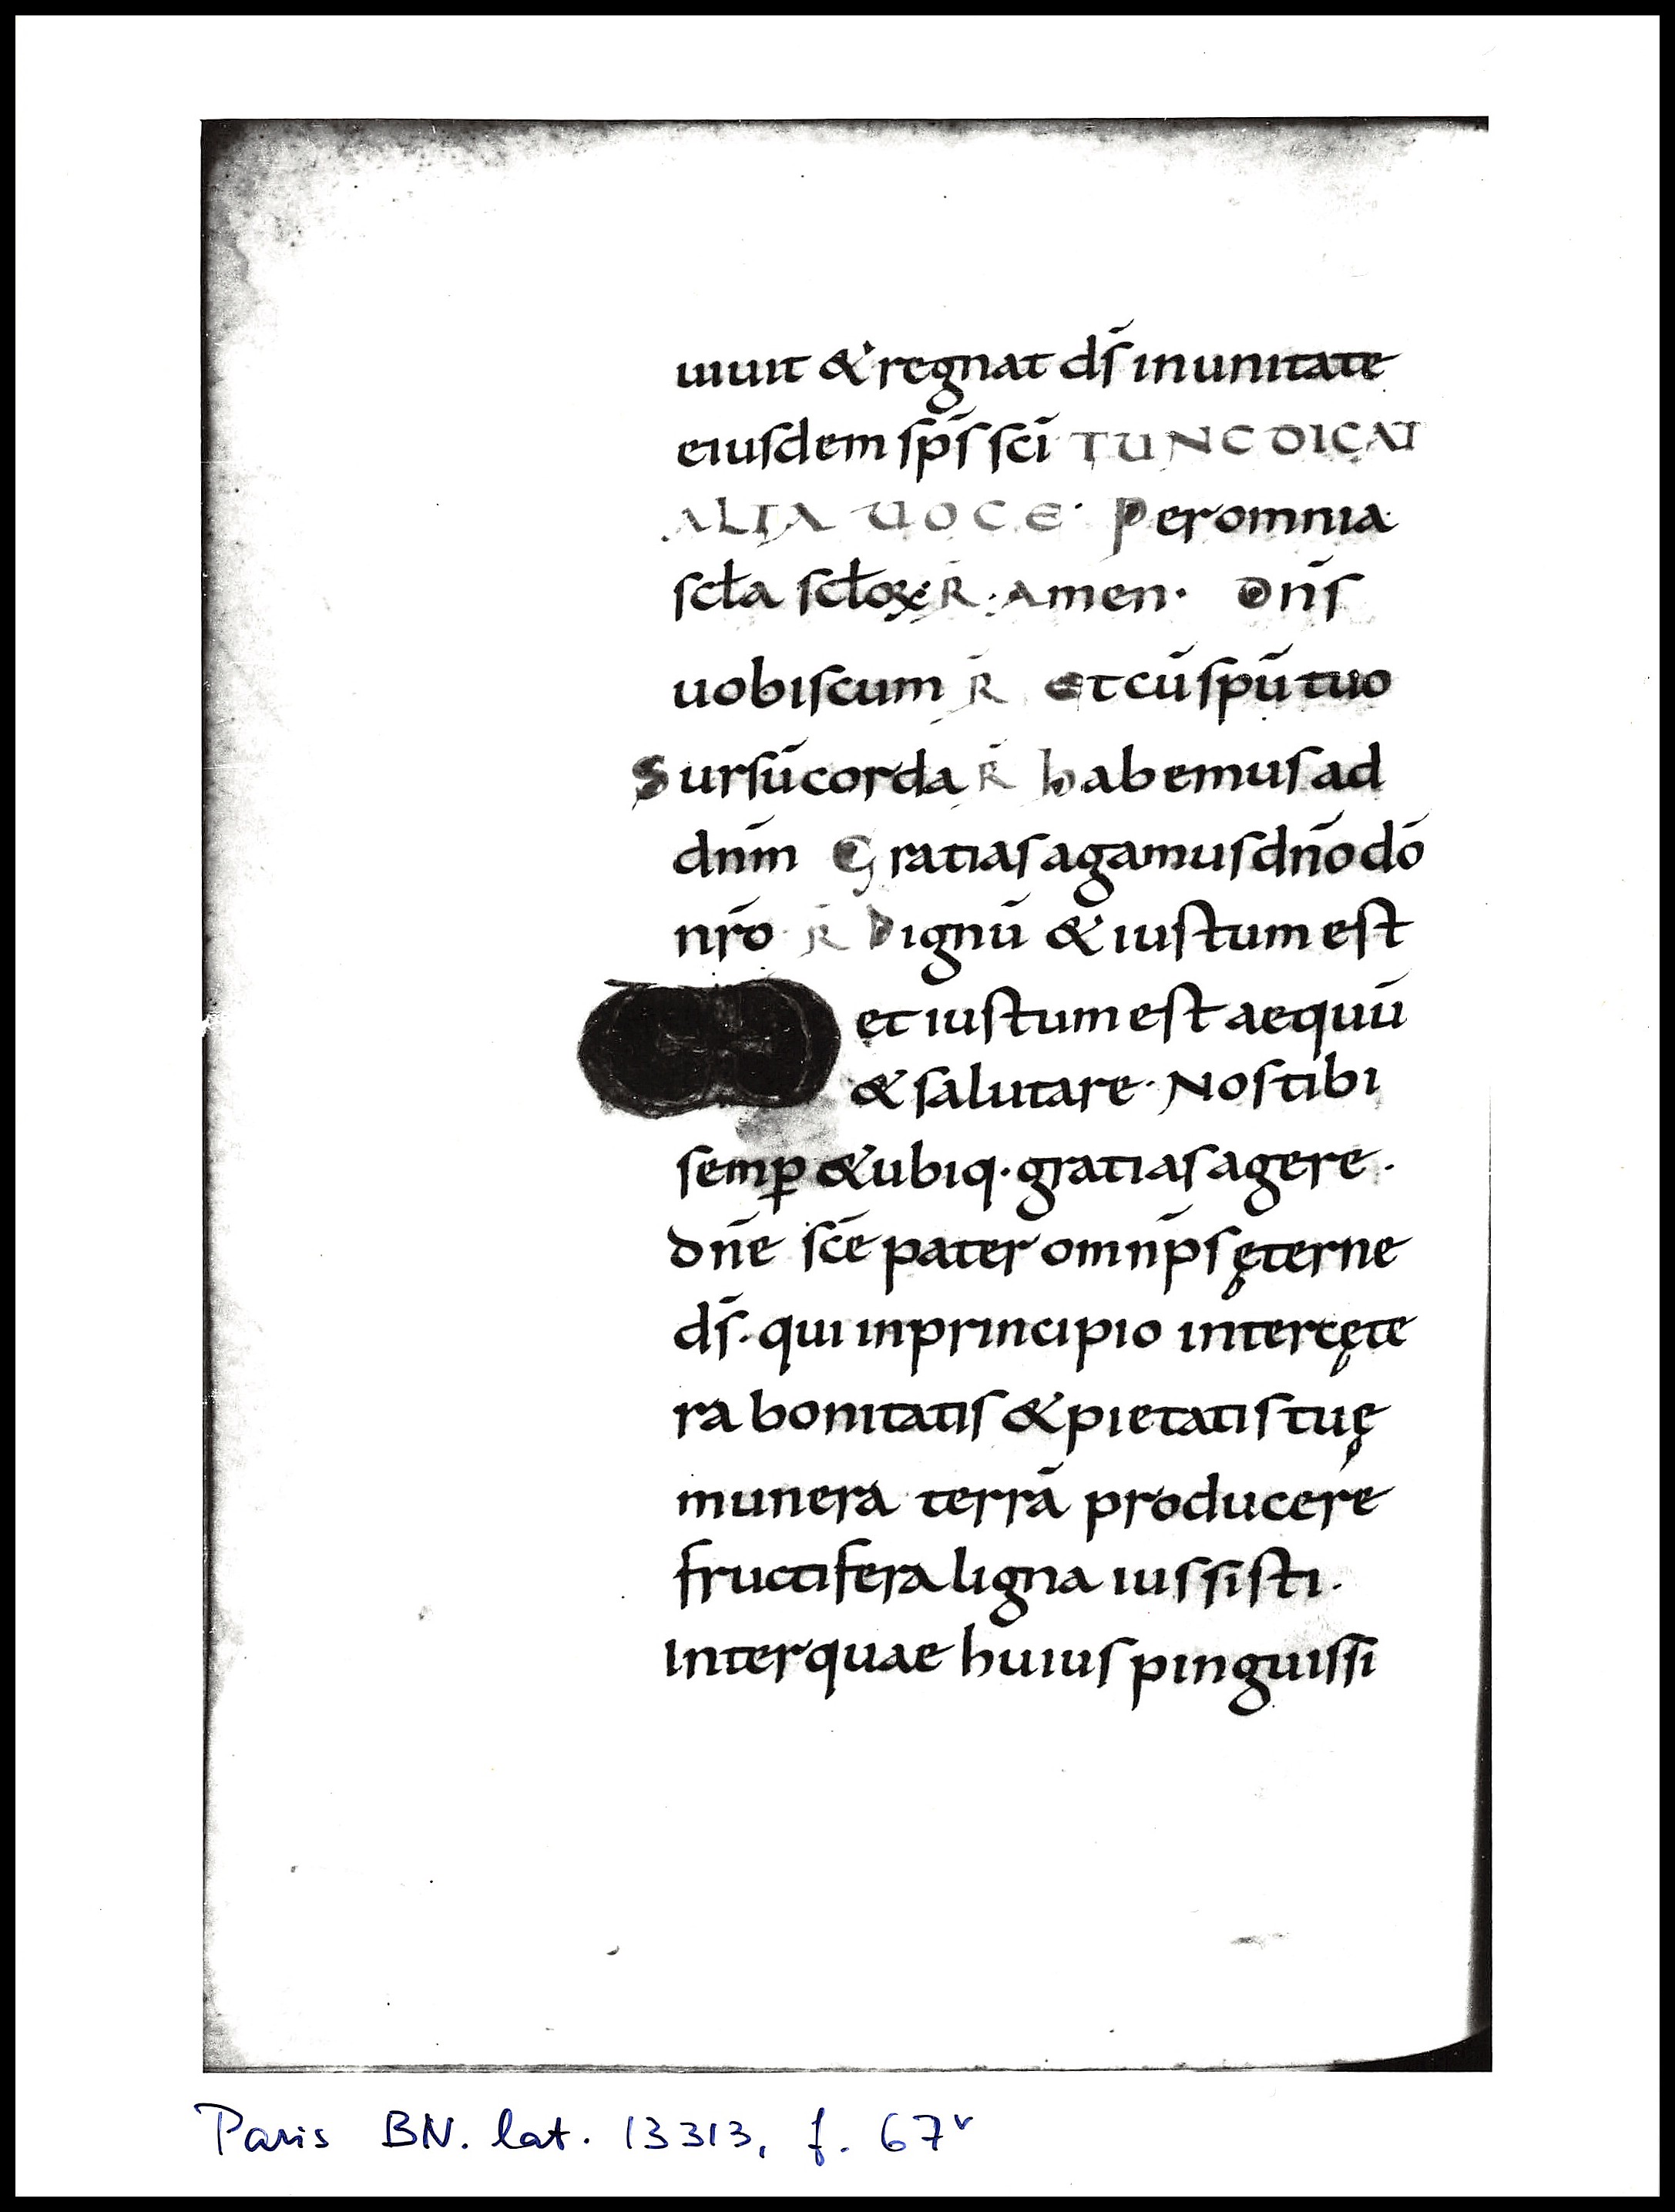 uiuit & regnat dſ̄ in unitate
eiuſdem ſpſ̄ ſcī TUNC DICAT
ALTA UOCE· Per omnia
ſcła ſcłoꝝ· R̄· Amen· Dn̄ſ
uobiſcum R̄ Et cū ſpū tuo
Surſū corda R̄ habemuſ ad
dnm̄ Gratiaſ agamuſ dn̄o dō
nr̄o R̄ Dignū & iuſtum eſt
et iuſtum eſt aequū
& ſalutare· Noſ tibi
ſemꝑ & ubiq· gratiaſ agere·
Dnē ſcē pater omnp̄ſ ęterne
dſ̄· qui in principio inter cęte
ra bonitatiſ & pietatiſ tuę
munera terrā producere
fructifera ligna iuſſiſti·
Inter quae huiuſ pinguiſſi
Paris BN. lat. 13313, f. 67v